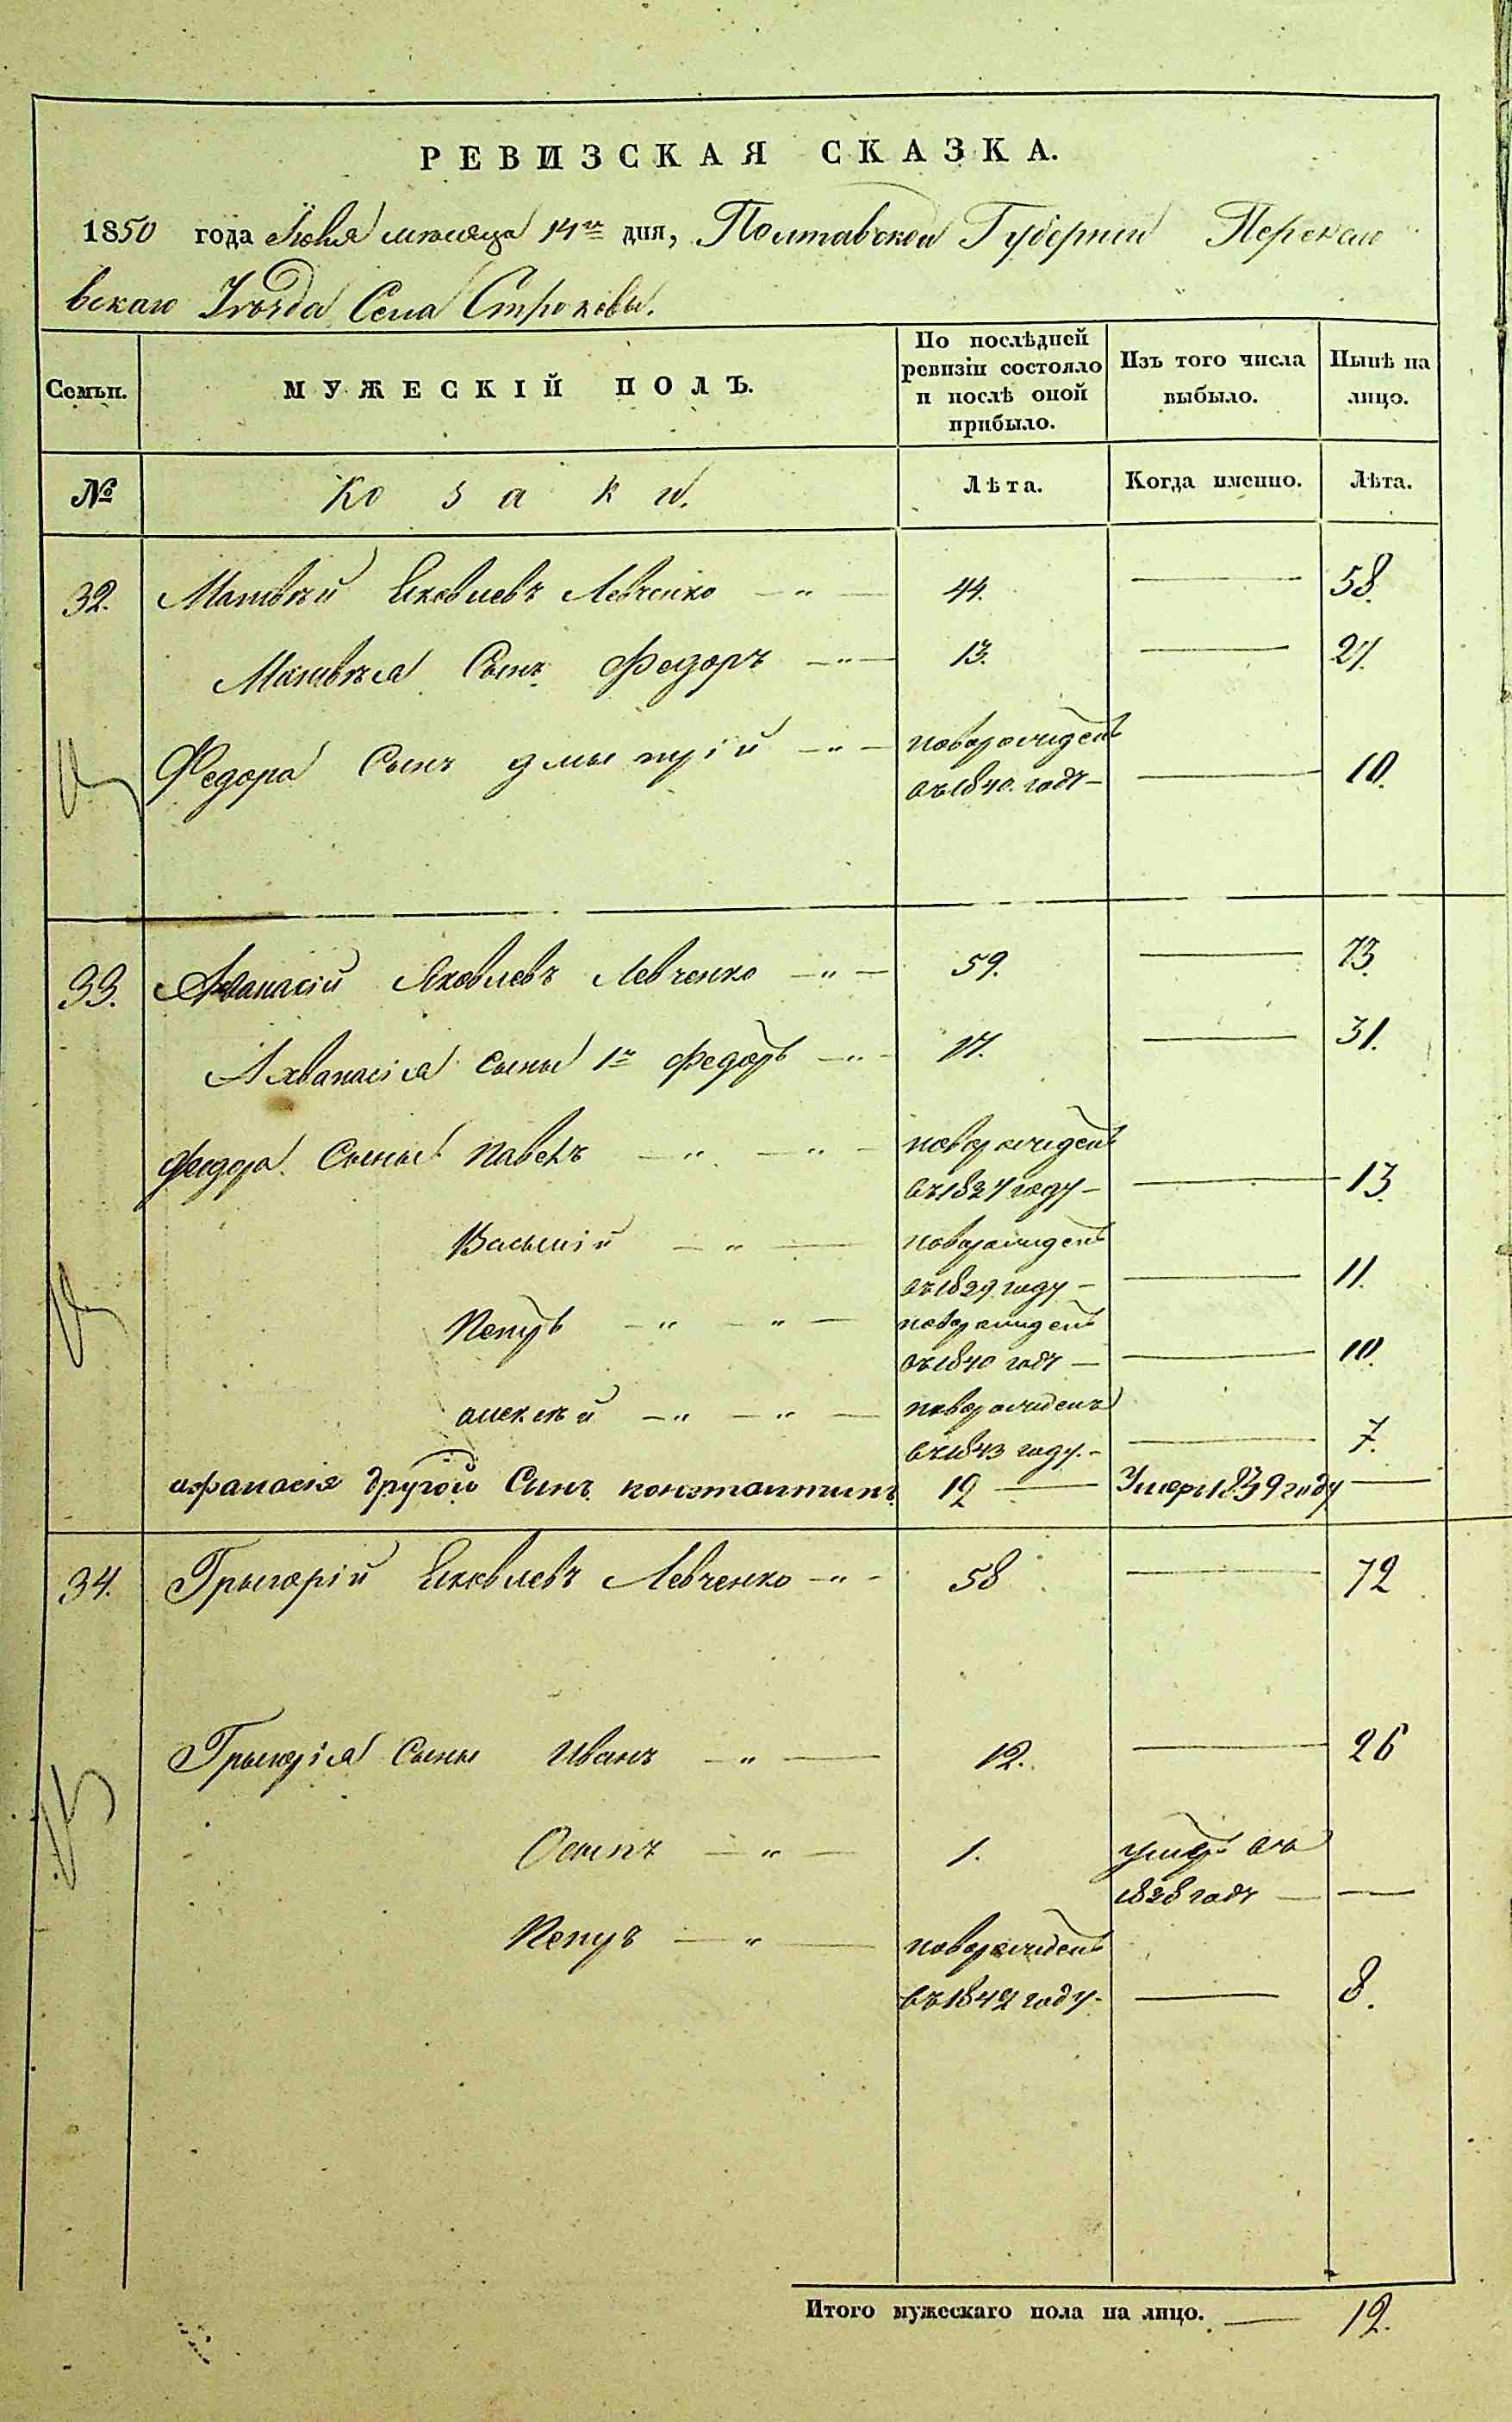 РЕВИЗСКАЯ СКАЗКА.
1850 года Июня месяца 14го дня, Полтавской Губерніи
вскаго Уѣзда Села Строковы.
Семьи.
МУЖЕСКІЙ ПОЛЪ.
По послѣдней ревизіи состояло и послѣ оной прибыло.
Изъ того числа выбыло.
Нынѣ на лицо.
№
Козаки.
Лѣта.
Когда именно.
Лѣта.
32. Матвѣй Яковлевъ Левченко —„— 44. — 58.
Матвѣя Сынъ Федоръ —„— 13. — 27.
Федора Сынъ Дмытрій —„— новорожденъ
въ 1840. годѣ — — 10.
33. Афанасій Яковлевъ Левченко —„— 59. — 73.
Ахванасія сыны 1й Федоръ —„— 17. — 31.
Федора Сыны Павелъ —„— —„— новорожденъ
въ 1837 году — — 13.
Василій —„— новорожденъ
въ 1839 году — — 11.
Петръ —„— —„— новорожденъ
въ 1840 годѣ — — 10.
алексѣй —„— —„— новорожденъ
въ 1843 году. — — 7.
афанасія другой Синъ константинъ 12 — Умеръ 1839 году —
34. Грыгорій Яковлевъ Левченко —„— 58 — 72
Грыгорія Сыны Иванъ —„— 12. — 26
Осыпъ —„— 1. умеръ въ
1838 годѣ — —
Петръ —„— новорожденъ
въ 1842 году. — 8.
Итого мужескаго пола на лицо. — 12.